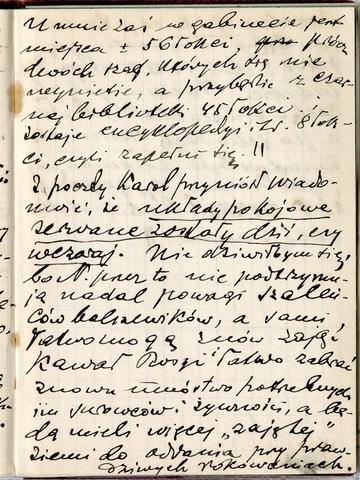 U mnie zaś w gabinecie jest
miejsca ± 56 łokci, prócz
dwóch szaf, których się nie
, a przybędzie z czar
nej biblioteki 45 łokci i
zostaje encyklopedyi t.z. 8 łok-
ci, czyli zapełni się!!
Z poczty Karol przyniósł wiado-
mość, że układy pokojowe
zerwane zostały dziś, czy
wczoraj. Nie dziwiłbym się,
bo N. przez to nie podtrzymu-
ją nadal powagi szaleń-
ców bolszewików, a sami
łatwo mogą znów zająć
kawał Rosyi i łatwo zabrać
znowu mnóstwo potrzebnych
im surowców i żywności, a bę-
dą mieli więcej „zajętej"
ziemi do oddania przy praw-
dziwych rokowaniach.